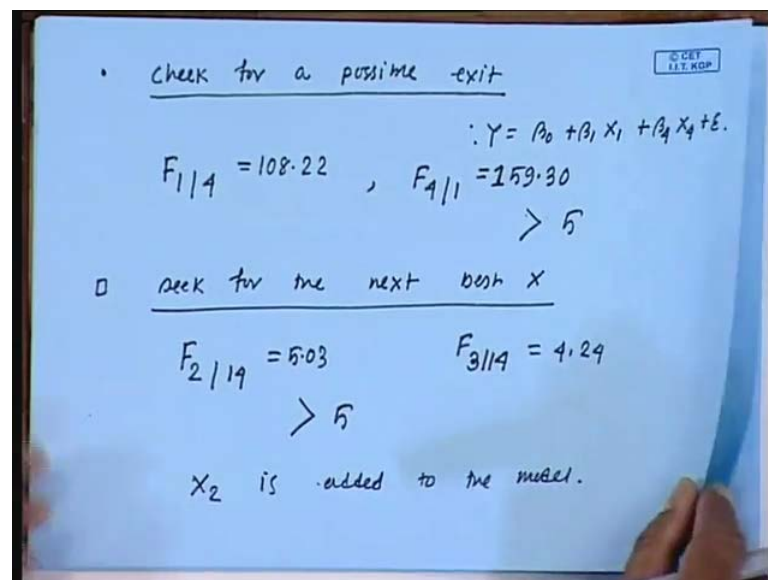 © CET
I.I.T. KGP
• Check for a possible exit
: Y = β₀ + β₁ X₁ + β₄ X₄ + ε.
F₁|₄ = 108.22 , F₄|₁ = 159.30
> 5
□ Seek for the next best X
F₂|₁₄ = 5.03 F₃|₁₄ = 4.24
> 5
X₂ is added to the model.